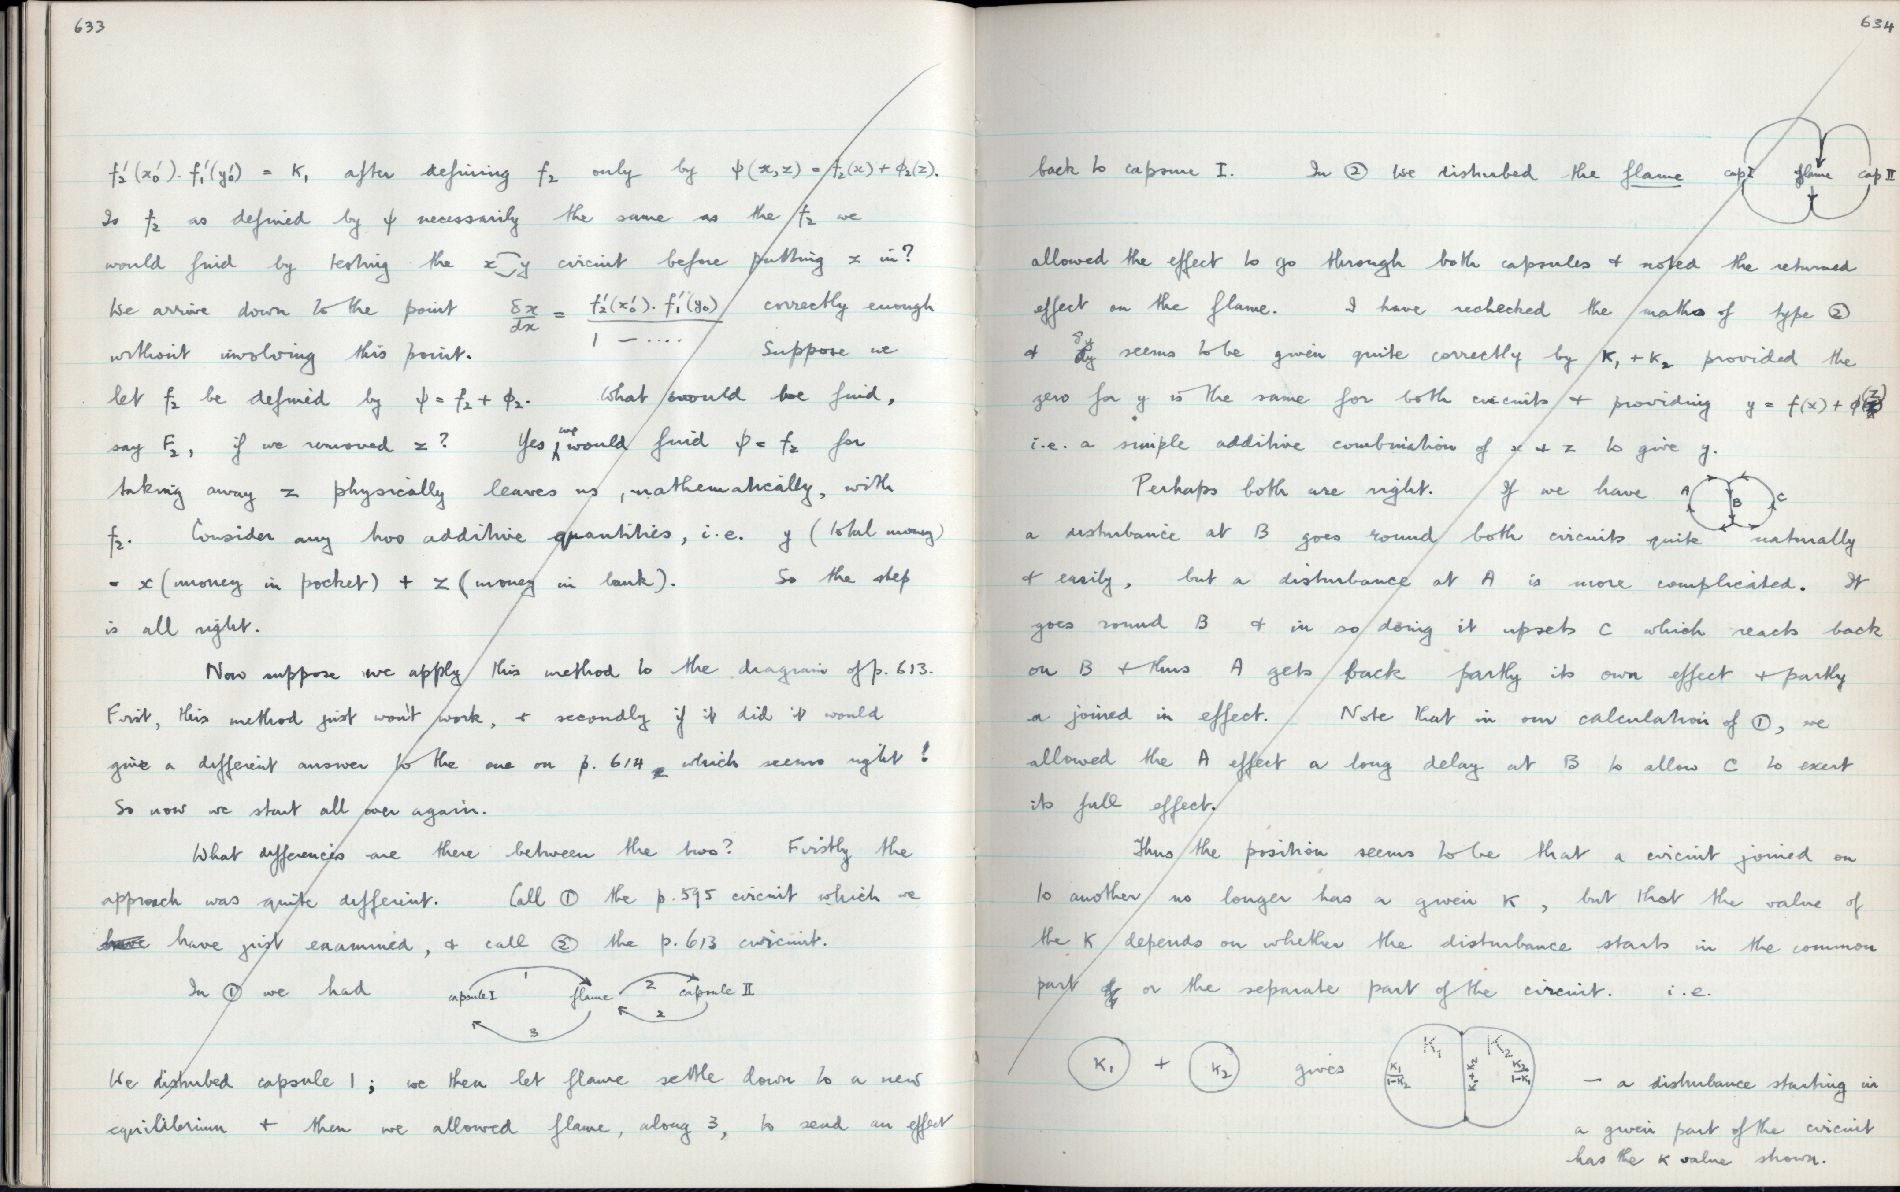 633
f₂'(x₀'). f₁'(y₀') = K₁ after defining f₂ only by ψ(x,z) = f₂(x) + φ₂(z).
Is f₂ as defined by ψ necessarily the same as the f₂ we
would find by testing the x y circuit before putting z in?
We arrive down to the point δx/dx = f₂'(x₀'). f₁'(y₀) / 1 - .... correctly enough
without involving this point. Suppose we
let f₂ be defined by ψ = f₂ + φ₂. What would we find,
say F₂, if we removed z? Yes, we would find ψ = f₂ for
taking away z physically leaves us, mathematically, with
f₂. Consider any two additive quantities, i.e. y (total money)
= x (money in pocket) + z (money in bank). So the step
is all right.
Now suppose we apply this method to the diagram of p. 613.
First, this method just won't work, + secondly if it did it would
give a different answer to the one on p. 614 which seems right!
So now we start all over again.
What differences are there between the two? Firstly the
approach was quite different. Call ① the p. 595 circuit which we
have just examined, + call ② the p. 613 circuit.
In ① we had capsule I 1 flame 2 capsule II
3 2
We disturbed capsule 1; we then let flame settle down to a new
equilibrium + then we allowed flame, along 3, to send an effect
634
back to capsule I. In ② we disturbed the flame cap I flame cap II
allowed the effect to go through both capsules + noted the returned
effect on the flame. I have rechecked the maths of type ②
+ δy/dy seems to be given quite correctly by K₁ + K₂ provided the
zero for y is the same for both circuits + providing y = f(x) + φ(z)
i.e. a simple additive combination of x + z to give y.
Perhaps both are right. If we have A B C
a disturbance at B goes round both circuits quite naturally
+ easily, but a disturbance at A is more complicated. It
goes round B + in so doing it upsets C which reacts back
on B + thus A gets back partly its own effect + partly
a joined in effect. Note that in our calculation of ①, we
allowed the A effect a long delay at B to allow C to exert
its full effect.
Thus the position seems to be that a circuit joined on
to another no longer has a given K, but that the value of
the K depends on whether the disturbance starts in the common
part or the separate part of the circuit. i.e.
K₁ + K₂ gives K₁ K₂ K₁/1-K₂ K₁+K₂ K₂/1-K₁ — a disturbance starting in
a given part of the circuit
has the K value shown.